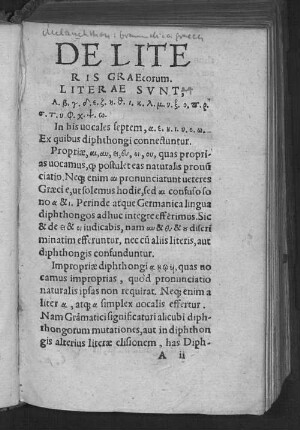 Melanchthon:
DE LITE
RIS GRAEcorum.
LITERAE SVNT,
Α. β. γ. δ. ε. ζ. η. θ. ι. κ. λ. μ. ν. ξ. ο. π. ρ.
σ. τ. υ. φ. χ. ψ. ω.
In his uocales septem, α. ε. η. ι. υ. ο. ω.
Ex quibus diphthongi connectuntur.
Propriæ, αι, αυ, ει, ευ, οι, ου, quas propri-
as uocamus, ꝙ postulet eas naturalis pronun
ciatio. Neqꝫ enim αι pronunciatunt ueteres
Græci ε, ut solemus hodie, sed αι confuso so
no α & ι. Perinde atque Germanica lingua
diphthongos adhuc integre efferimus. Sic
& de ει & οι iudicabis, nam αυ & ευ & ου discri
minatim efferuntur, nec cū aliis literis, aut
diphthongis confunduntur.
Impropriæ diphthongi ᾳ ῃ ῳ υι, quas uo
camus improprias, quòd pronunciatio
naturalis ipsas non requirat. Neqꝫ enim a
liter ᾳ, atqꝫ α simplex uocalis effertur.
Nam Grāmatici significaturi alicubi diph
thongorum mutationes, aut in diphthon
gis alterius literæ elisionem, has Diph-
A ii